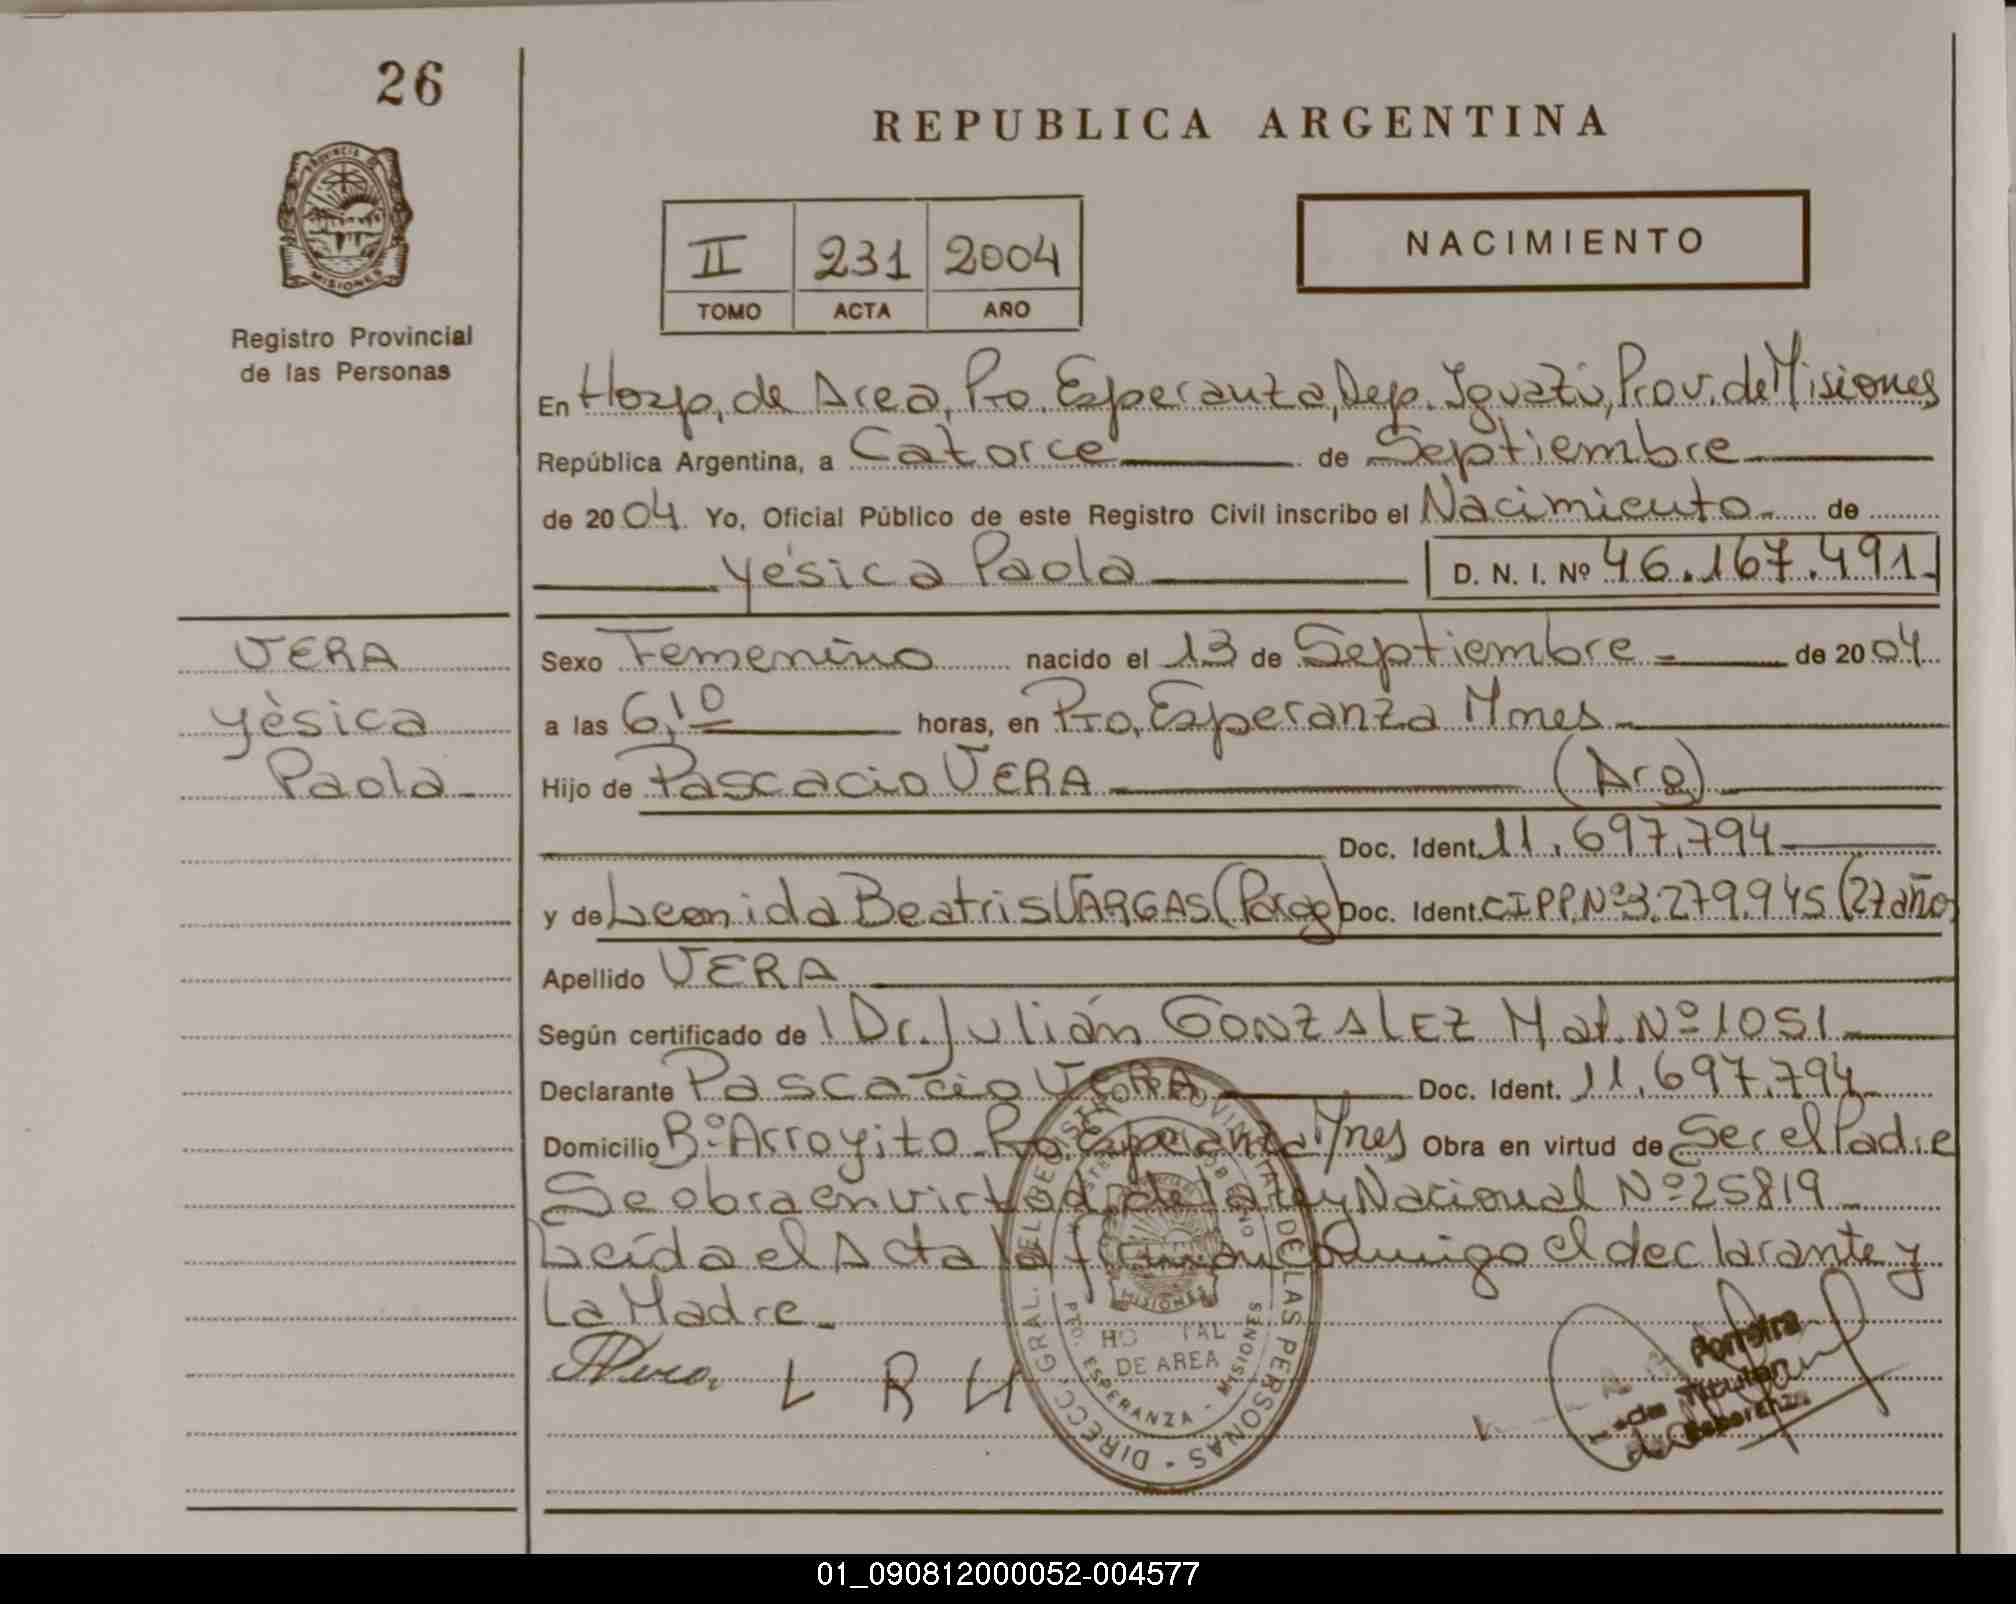 26
PROVINCIA DE
MISIONES
Registro Provincial
de las Personas
REPUBLICA ARGENTINA
II 231 2004
TOMO ACTA AÑO
NACIMIENTO
En Hosp. de Area, Pto. Esperanza, Dep. Iguazú, Prov. de Misiones
República Argentina, a Catorce de Septiembre
de 2004. Yo, Oficial Público de este Registro Civil inscribo el Nacimiento de
Yésica Paola D. N. I. Nº 46.167.491
VERA
Yèsica
Paola
Sexo Femenino nacido el 13 de Septiembre de 2004
a las 6,10 horas, en Pto. Esperanza Mnes
Hijo de Pascacio VERA (Arg)
Doc. Ident. 11.697.794
y de Leonida Beatris VARGAS (Parag) Doc. Ident. CIPP.Nº3.279.945 (27 año)
Apellido VERA
Según certificado de l Dr. Julián GONZALEZ Mat. Nº 1051
Declarante Pascacio VERA Doc. Ident. 11.697.794
Domicilio Bº Arroyito Pto. Esperanza Mnes Obra en virtud de Ser el Padre
Se obra en virtud de la Ley Nacional Nº 25819
Leída el Acta la firman conmigo el declarante y
La Madre
L B V
DIRECC. GRAL. DEL REGISTRO PROVINCIAL DE LAS PERSONAS
MISIONES
HO TAL
DE AREA
PTO. ESPERANZA - MISIONES
Ferreira
Titular
Esperanza
01_090812000052-004577